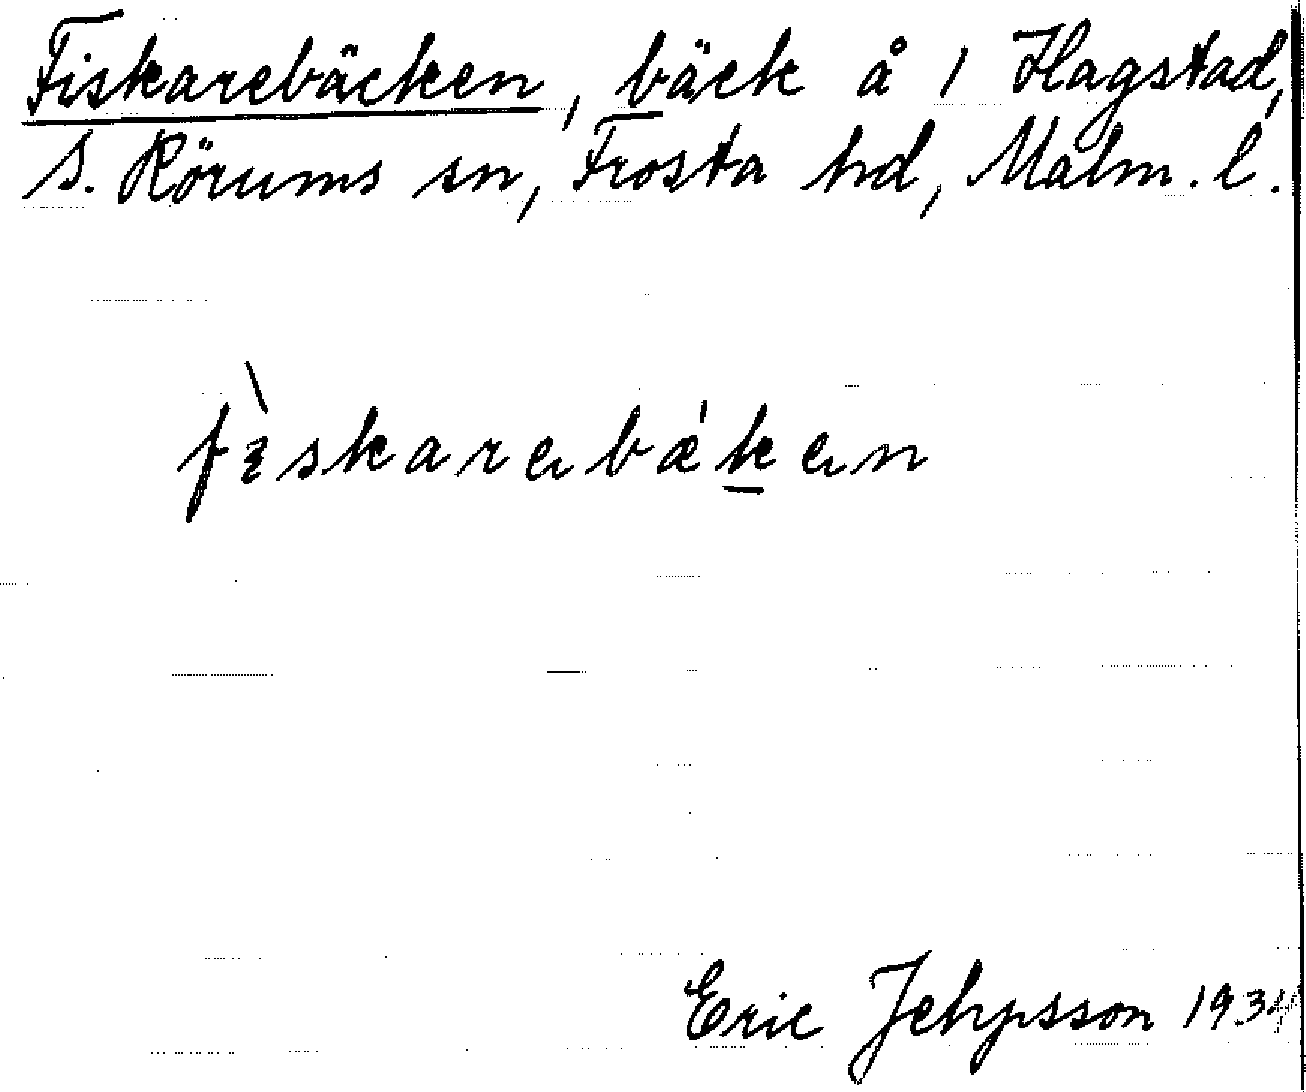 Fiskarebäcken, bäck å 1 Hagstad,
S. Rörums sn, Frosta hd, Malm. l.
fìskarebæ'ken
Eric Jehpsson 1934